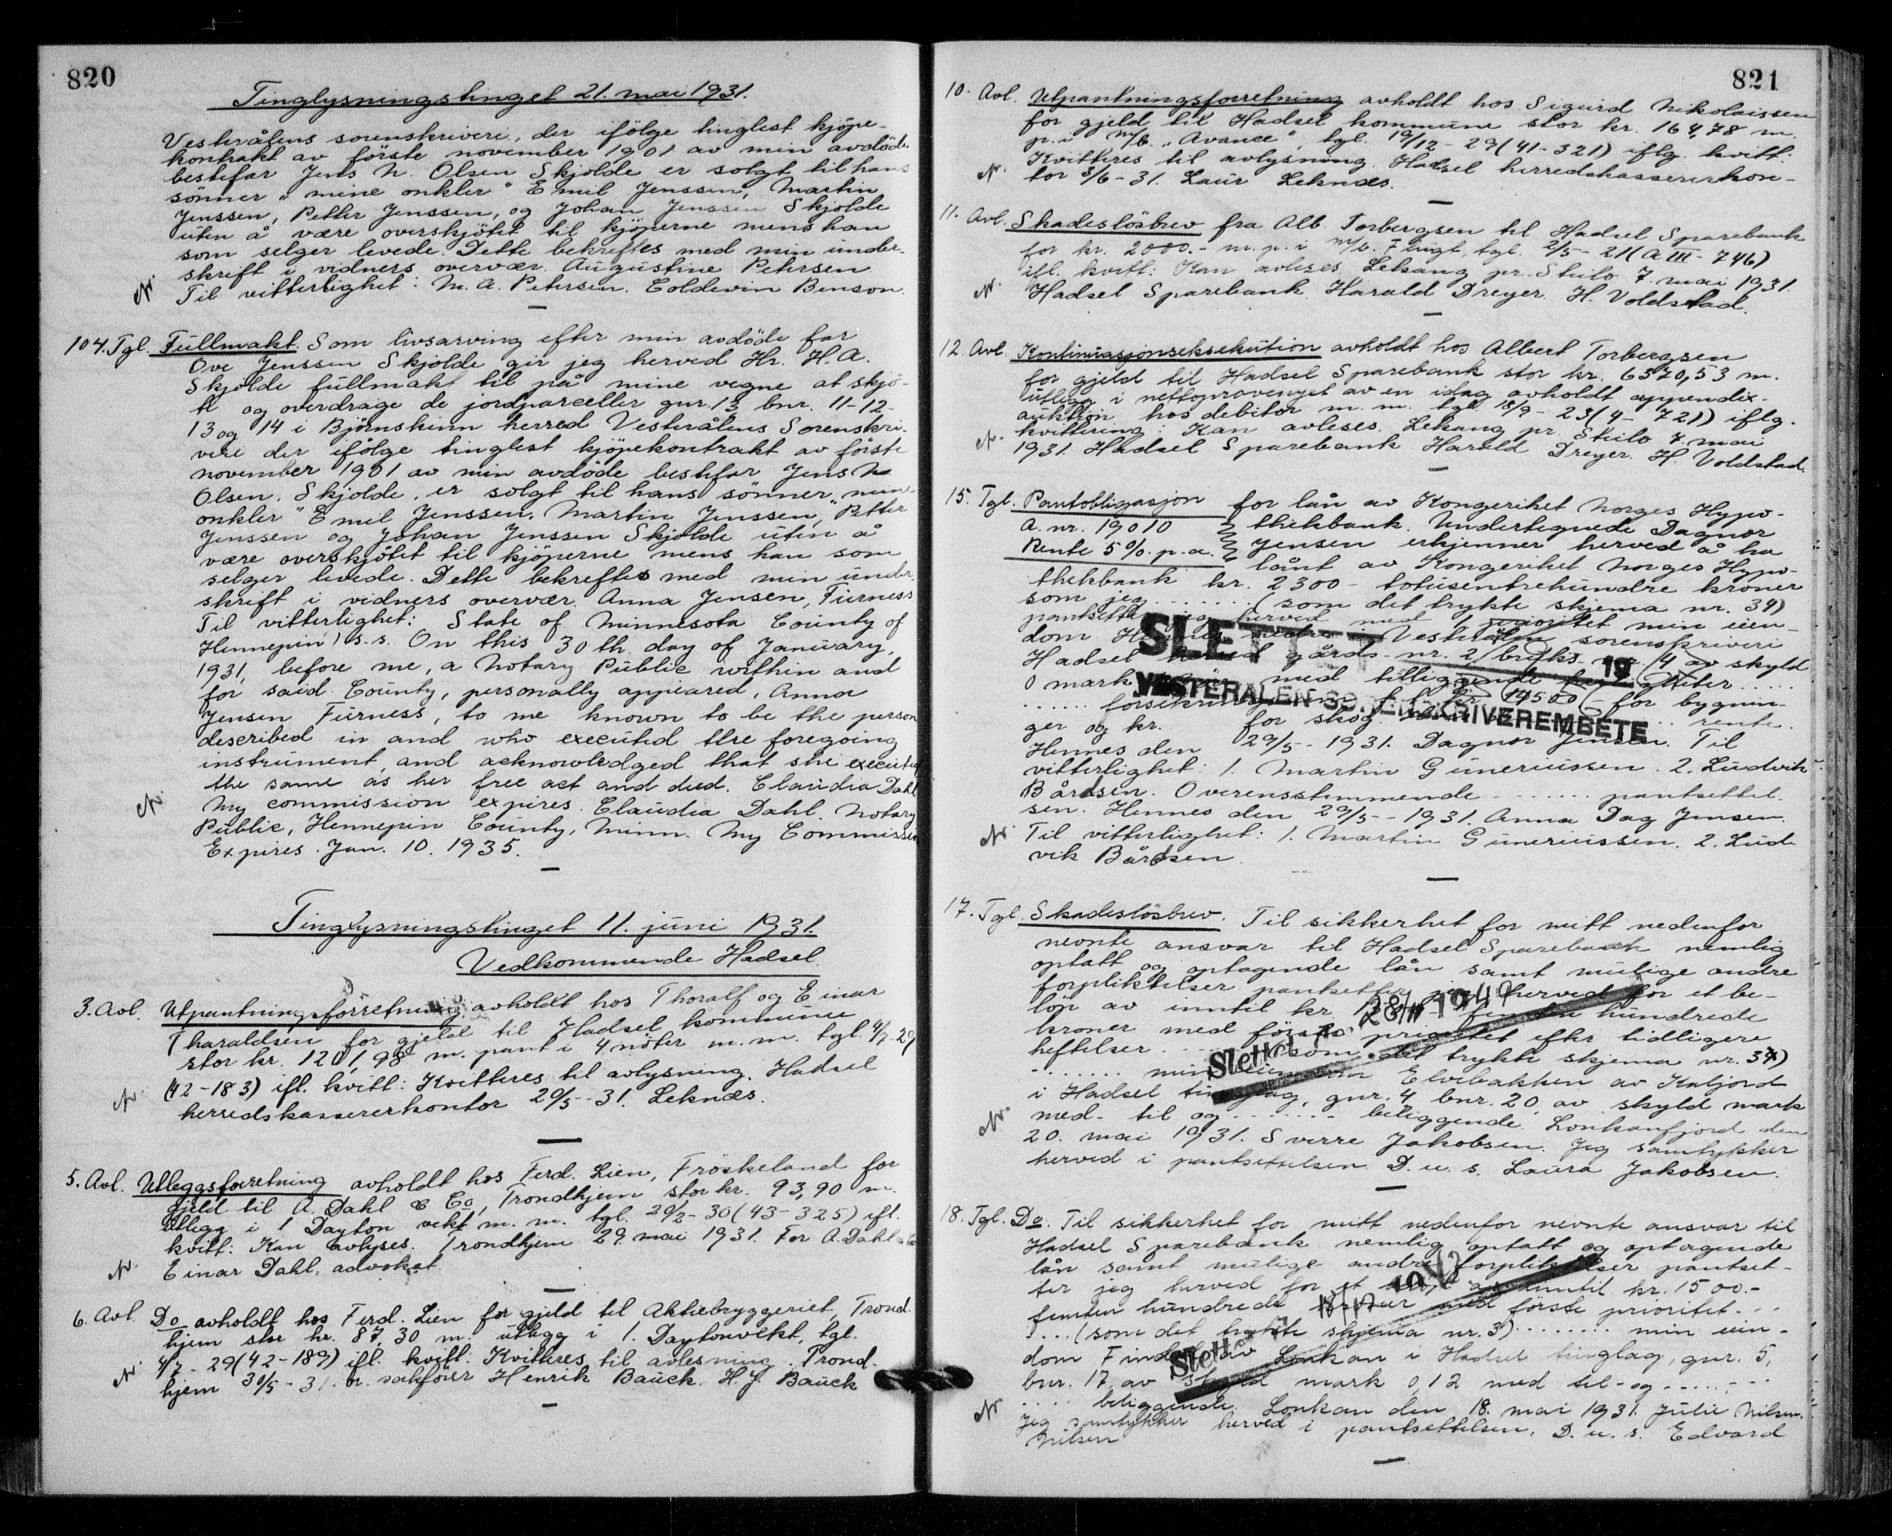 820
Tinglysningstinget 21. mai 1931.
Vesterålens sorenskriveri, der ifölge tinglest kjöpe-
kontrakt av förste november 1901 av min avdöde
bestefar Jens N. Olsen Skjolde er solgt til hans
sönner "mine onkler" Emil Jenssen, Martin
Jenssen, Petter Jenssen, og Johan Jenssen Skjolde
uten å være overskjötet til kjöperne mens han
som selger levede. Dette bekreftes med min under-
skrift i vidners overvær. Augustine Petersen
Til vitterlighet: M. A. Petersen. Coldevin Benson.
104. Tgl. Fullmakt. Som livsarving efter min avdöde far
Ove Jenssen Skjolde gir jeg herved Hr. H. A.
Skjolde fullmakt til på mine vegne at skjö-
te og overdrage de jordparceller gnr. 13 bnr. 11-12-
13 og 14 i Bjørnskinn herred Vesterålens Sorenskri-
veri der ifölge tinglest kjöpekontrakt av förste
november 1901 av min avdöde bestefar Jens N.
Olsen. Skjolde. er solgt til hans sönner "mine
onkler" Emil Jenssen. Martin Jenssen, Petter
Jenssen og Johan Jenssen Skjolde uten å
være overskjötet til kjöperne mens han som
selger levede. Dette bekreftes med min under-
skrift i vidners overvær. Anna Jensen, Furness
Til vitterlighet: State of Minnesota County of
Hennepin) s.s. On this 30th. day of January,
1931, before me, a Notary Public within and
for said County, personally appeared, Anna
Jensen Furness, to me known to be the person
described in and who executed the foregoing
instrument, and acknowledged that she executed
the same as her free act and deed. Claudia Dahl
My commission expires. Claudia Dahl. Notary
Public, Hennepin County, Minn. My Commission
Expires. Jan. 10. 1935.
Tinglysningstinget 11. juni 1931.
Vedkommende Hadsel.
3. Avl. Utpantningsforretning avholdt hos Thoralf og Einar
Tharaldsen for gjeld til Hadsel kommune
stor kr. 1201,98 m. pant i 4 nöter m. m. tgl. 4/7-29
(42-183) ifl. kvitt: Kvitteres til avlysning. Hadsel
herredskassererkontor 29/5-31. Leknæs.
5. Avl. Utleggsforretning avholdt hos Ferd. Lien, Fröskeland for
gjeld til A. Dahl & Co, Trondhjem stor kr. 93,90 m.
utlegg i 1 Dayton vekt m. m. tgl. 29/2-30 (43-325) ifl.
kvitt: Kan avlyses. Trondhjem 29. mai 1931. For A. Dahl & Co
Einar Dahl, advokat.
6. Avl. Do avholdt hos Ferd. Lien for gjeld til Aktiebryggeriet, Trond-
hjem stor kr. 87,30 m. utlegg i 1. Daytonvekt, tgl.
4/7-29 (42-189) ifl. kvitt. Kvitteres til avlesning. Trond-
hjem 30/5-31. or. sakförer Henrik Bauck. H. J. Bauck
821
10. Avl. Utpantningsforretning avholdt hos Sigurd Nikolaissen
for gjeld til Hadsel kommune stor kr. 164,78 m.
p. i m/b. "Avance", tgl. 19/12-29 (41-321) iflg. kvitt.
Kvitteres til avlysning. Hadsel herredskassererkon-
tor 3/6-31. Laur Leknæs.
11. Avl. Skadeslösbrev fra Alb. Torbergsen til Hadsel Sparebank
for kr. 2000.- m. p. i m/b. Flugt, tgl. 2/5-21 (A III-746)
ifl. kvitt: Kan avleses. Lekang pr. Stilo 7 mai 1931.
Hadsel Sparebank Harald Dreyer. H. Voldstad.
12. Avl. Kontinuasjonseksekution avholdt hos Albert Torbergsen
for gjeld til Hadsel Sparebank stor kr. 6370,53 m.
utlegg i nettoprovenyet av en idag avholdt appendix-
auktion hos debitor m. m. tgl. 18/9-23 (4-721) iflg.
kvittering: Kan avleses. Lekang pr. Stilo 7. mai
1931. Hadsel Sparebank Harald Dreyer. H. Voldstad.
15. Tgl. Pantobligasjon for lån av Kongeriket Norges Hypo-
A. nr. 19010 thekbank. Undertegnede Dagnor
Rente 5%. p. a. Jensen erkjenner herved å ha
lånt av Kongeriket Norges Hypo-
thekbank kr. 2300 - totusentrehundre kroner
som jeg ........ (som det trykte skjema nr. 34)
pantsetter jeg herved med 1 prioritet min eien-
dom Vesterålen sorenskriveri
Hadsel herred gårds-nr. 2 bruks-nr. 4 av skyld
0 mark med tilliggende herligheter .....
...... 14500 for bygnin-
ger og kr. for skog ...... rente
Hennes den 29/5-1931. Dagnor Jensen. Til
vitterlighet: 1. Martin Guneriussen. 2. Ludvik
Bårdsen. Overensstemmende ........ pantsettel
sen. Hennes den 29/5-1931. Anna Dag Jensen.
Til vitterlighet: 1. Martin Guneriussen. 2. Lud-
vik Bårdsen.
SLETTET
19
VESTERÅLEN SORENSKRIVEREMBETE
17. Tgl. Skadeslösbrev. Til sikkerhet for mitt nedenfor
nevnte ansvar til Hadsel Sparebank nemlig
optatt og optagende lån samt mulige andre
forpliktelser pantsetter jeg herved for et be-
löp av inntil kr. hundrede
kroner med förste prioritet efter tidligere
heftelser ........ (som det trykte skjema nr. 34)
........ min eiendom Elvebakken av Kaljord
i Hadsel tinglag, gnr. 4 bnr. 20 av skyld mark
med- til og ........ beliggende. Lonkanfjord den
20. mai 1931. Sverre Jakobsen. Jeg samtykker
herved i pantsettelsen D. u. s. Laura Jakobsen.
Slettet 28/11 1949
18. Tgl. Do. Til sikkerhet for mitt nedenfor nevnte ansvar til
Hadsel Sparebank nemlig optatt og optagende
lån samt mulige andre forpliktelser pantset-
ter jeg herved for et beløp av inntil kr. 1500.-
femten hundrede kroner med förste prioritet...
... (som det trykte skjema nr. 3) ........ min eien-
dom av Lonkan i Hadsel tinglag, gnr. 5,
bnr. 17, av skyld mark 0,12 med til- og ........
.... beliggende. Lonkan den 18. mai 1931. Julie Nilsen.
Jeg samtykker herved i pantsettelsen. D. u. s. Edvard
Nilsen
Slettet